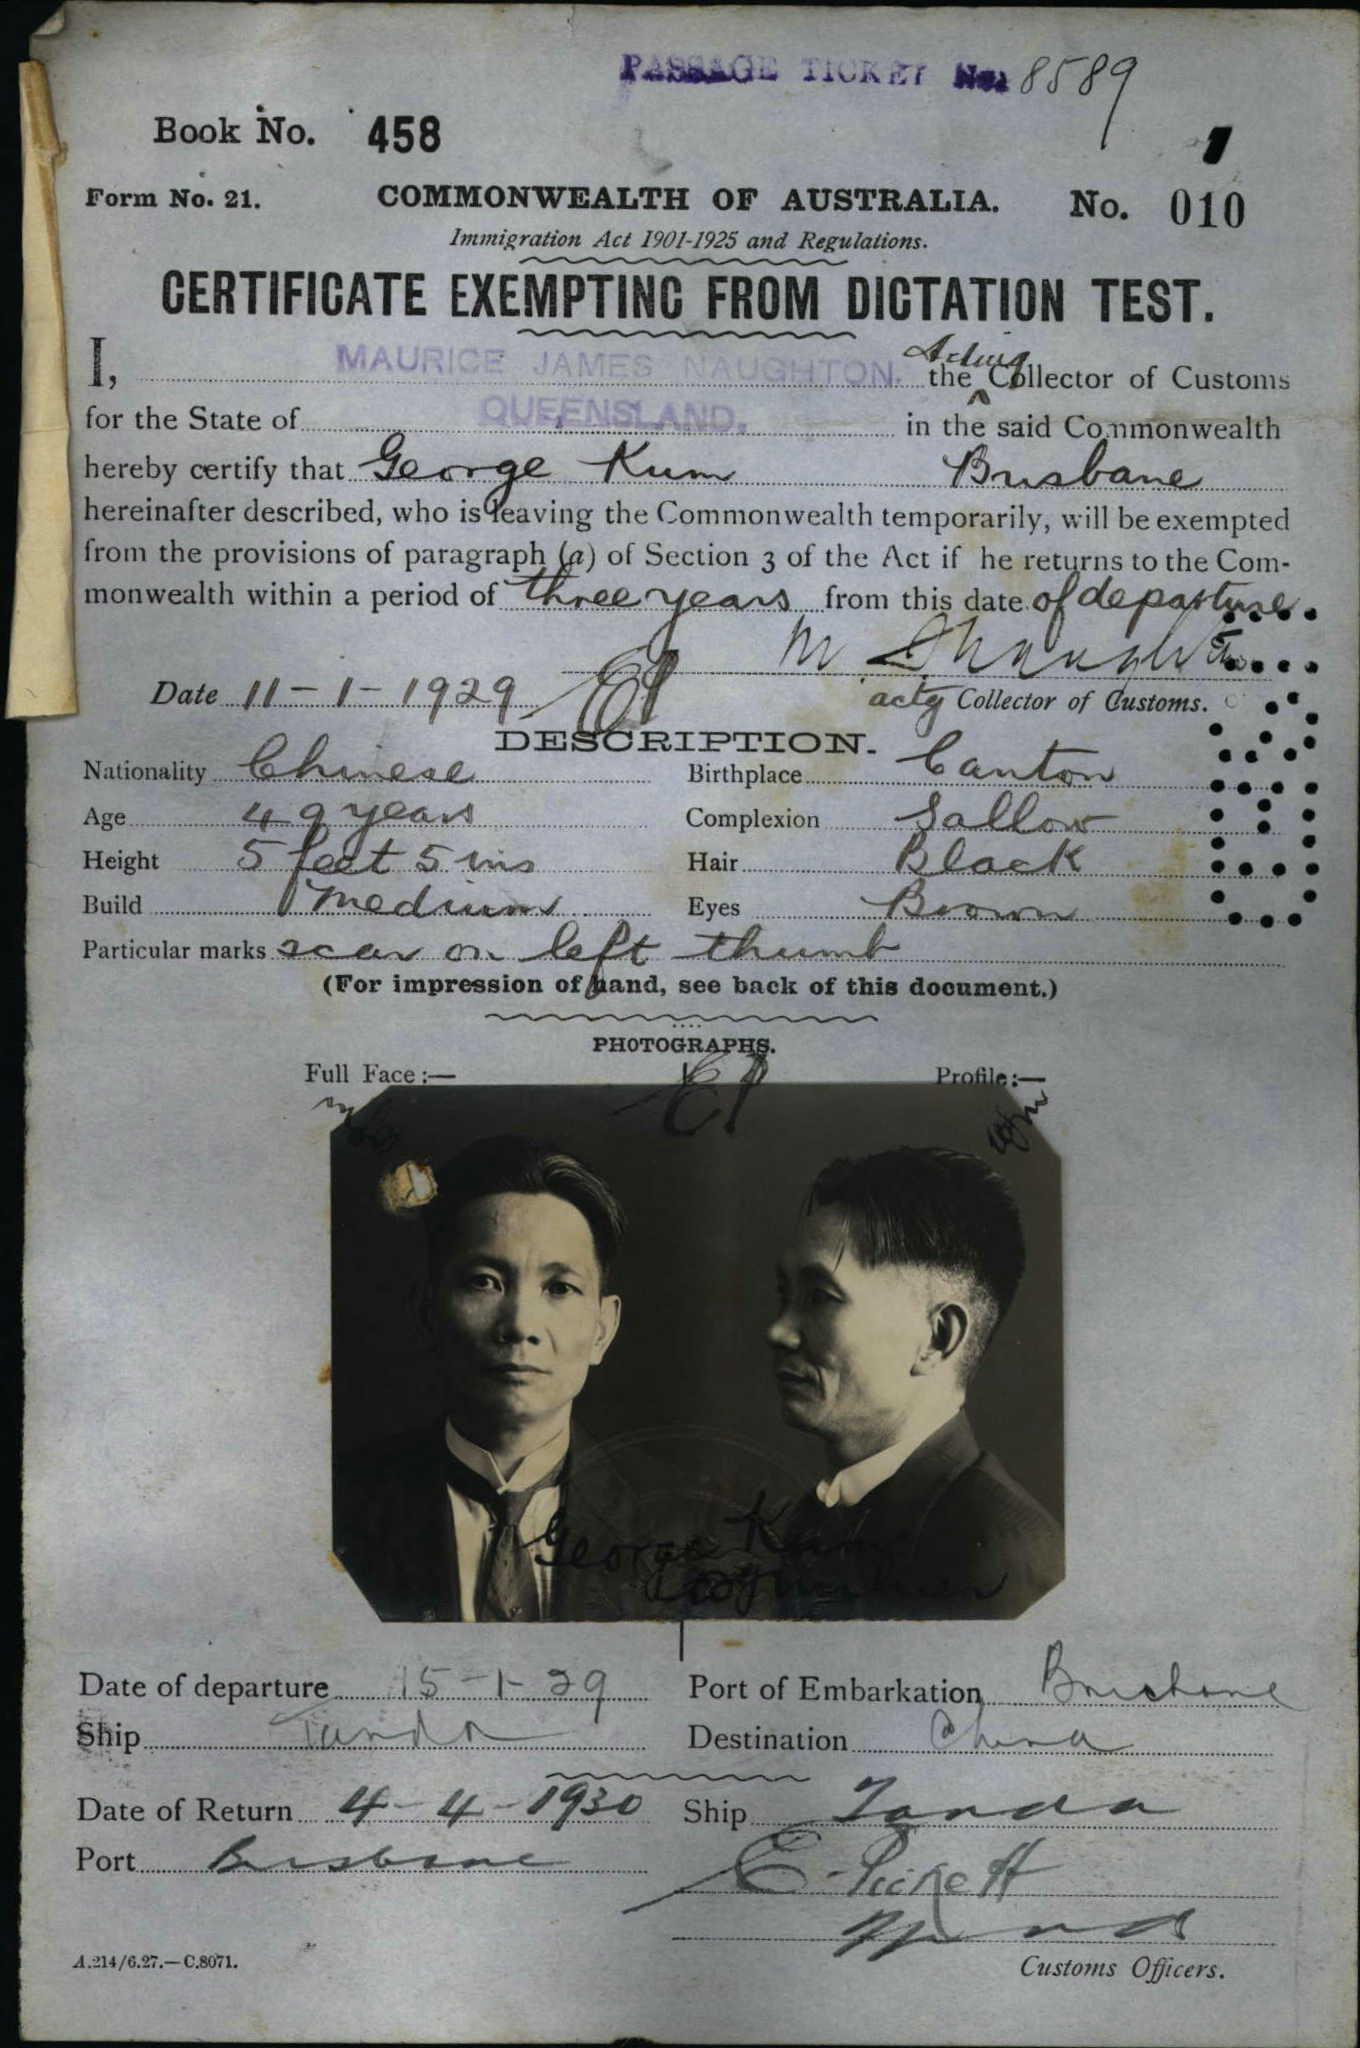 PASSAGE TICKET No. 8589
Book No. 458
Form No. 21. COMMONWEALTH OF AUSTRALIA. No. 010
Immigration Act 1901-1925 and Regulations.
CERTIFICATE EXEMPTING FROM DICTATION TEST.
I, MAURICE JAMES NAUGHTON. the Acting Collector of Customs
for the State of QUEENSLAND. in the said Commonwealth
hereby certify that George Kum Brisbane
hereinafter described, who is leaving the Commonwealth temporarily, will be exempted
from the provisions of paragraph (a) of Section 3 of the Act if he returns to the Com-
monwealth within a period of three years from this date of departure.
Date 11-1-1929 actg Collector of Customs.
DESCRIPTION.
Nationality Chinese Birthplace Canton
Age 49 years Complexion Sallow
Height 5 feet 5 ins Hair Black
Build Medium Eyes Brown
Particular marks scar on left thumb
(For impression of hand, see back of this document.)
PHOTOGRAPHS.
Full Face :— Profile :—
George Kum
Date of departure 15-1-29 Port of Embarkation Brisbane
Ship Tanda Destination China
Date of Return 4-4-1930 Ship Tanda
Port Brisbane
Customs Officers.
A.214/6.27.—C.8071.